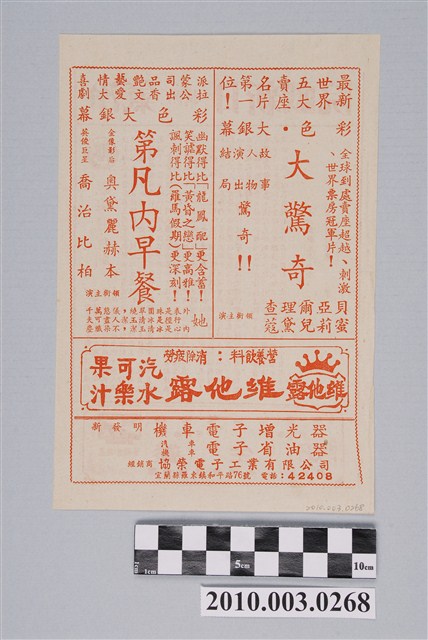 最新
世界
五大
賣座
名片
第一
位！
彩色・大銀幕
全球到處賣座超越、刺激
、世界票房冠軍片！
大驚奇
故事
人物
演出
結局
驚奇！！
貝亞爾理查
蜜莉兒黛蔻
領銜主演
派拉
蒙公
司出
品香
艷文
藝愛
情大
喜劇
彩色大銀幕
幽默得比「龍鳳配」更含蓄！
笑謔得比「黃昏之戀」更高雅！
諷刺得比(羅馬假期)更深刻！
第凡內早餐
金像影后 奧黛麗赫本
英俊巨星 喬治比柏
領銜主演
她
外表是珠圍翠繞，儀態萬千
營養飲料：消除疲勞
維他露
維他露
汽水
可樂
果汁
新發明 機車電子增光器
汽機車車電子省油器
經銷商 協榮電子工業有限公司
宜蘭縣羅東鎮和平路76號 電話：42408
2010.003.0268
1cm
5cm
10cm
2010.003.0268